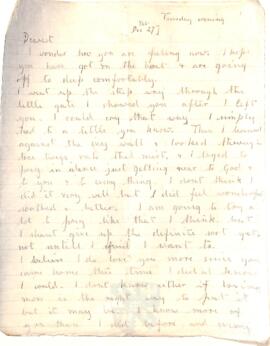 Tuesday evening
Dec 27
Dearest
I wonder how you are feeling now. I hope
you have got on the boat & are going
off to sleep comfortably.
I went up the steep way through the
little gate I showed you after I left
you. I could cry that way I simply
had to a little you know. Then I leaned
against the ivy wall & looked through
tree twigs into that mist, & I tried to
pray in silence just getting near to God &
to you & to everything. I don't think I
did it very well but I did feel
soothed & better. I am going to try a
lot to pray like that I think but
I shan't give up the definite sort yet
not until I I want to.
I believe I do love you more since you
came home this time I didn't know
I would. I don't know either if loving
more is the right way to put it
but it may be. I know more of
you than I did before and